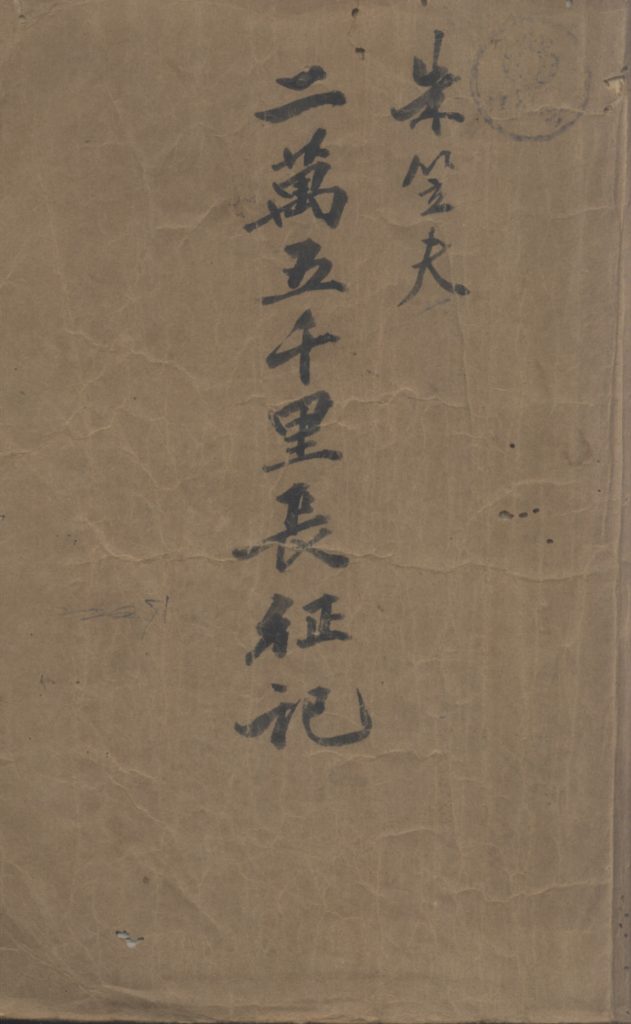 朱笠夫
二萬五千里長征記